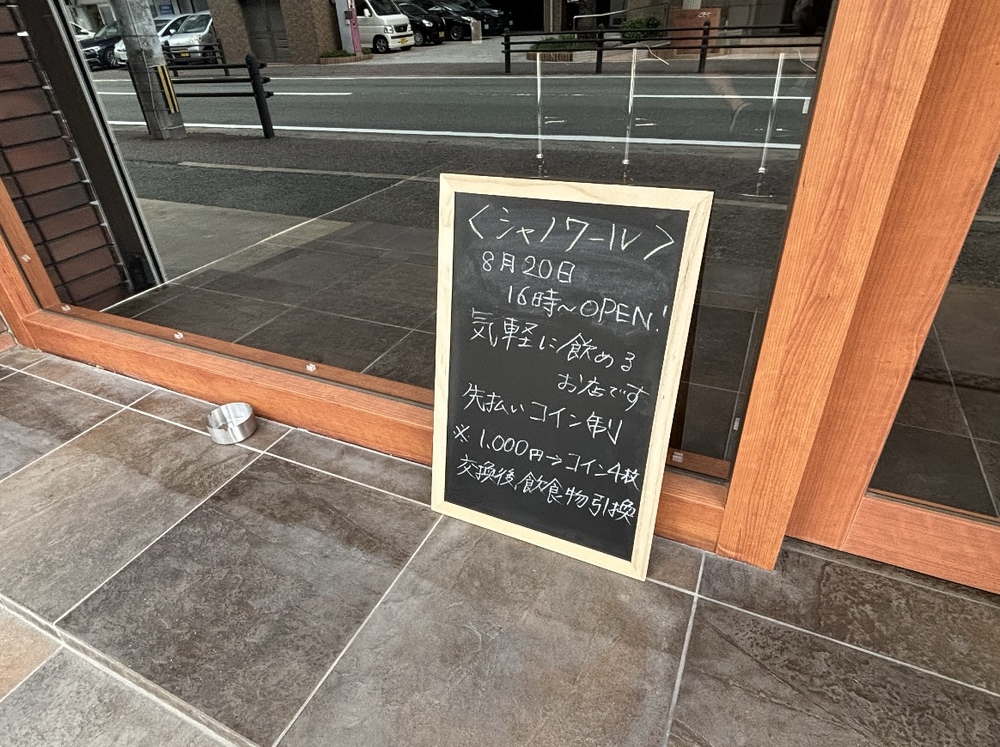 〈シャノワール〉
8月20日
16時~OPEN!
気軽に飲める
お店です
先払いコイン制
※1.000円→コイン4枚
交換後、飲食物引換